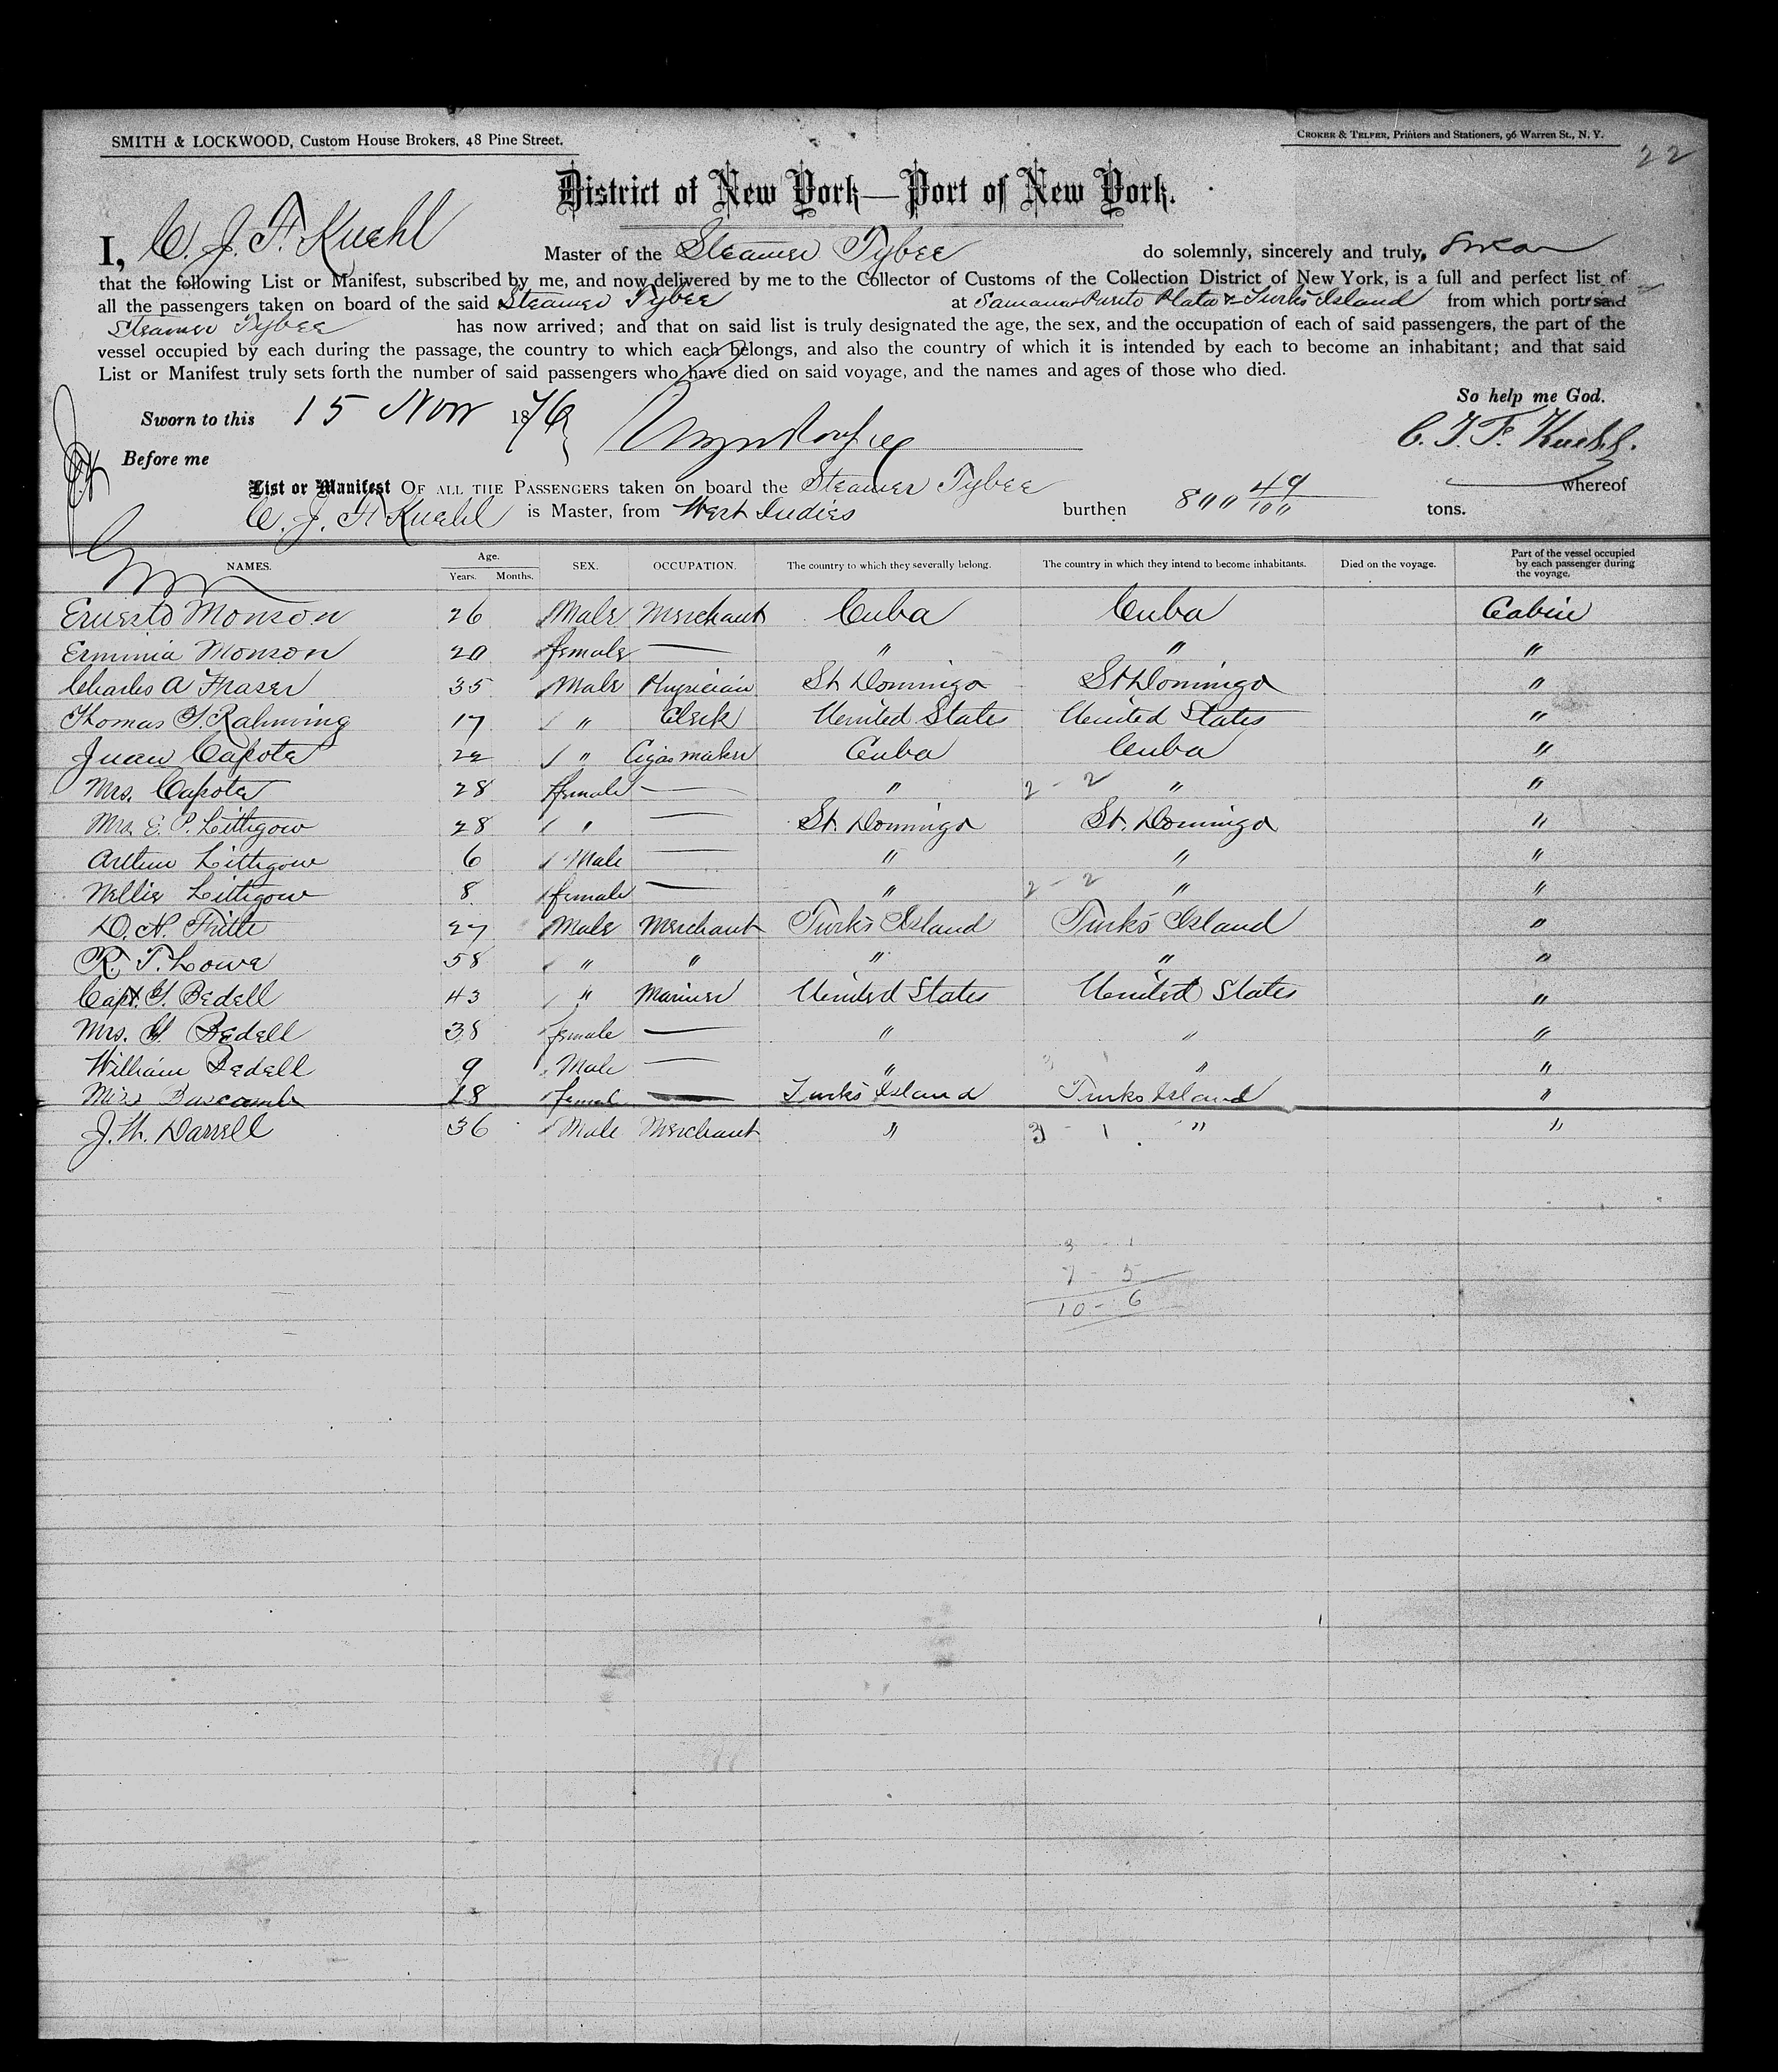 SMITH & LOCKWOOD, Custom House Brokers, 48 Pine Street.
CROKER & TELFER, Printers and Stationers, 96 Warren St., N. Y.
22
District of New York—Port of New York.
I, C. J. F. Kuehl Master of the Steamer Tybee do solemnly, sincerely and truly, swear
that the following List or Manifest, subscribed by me, and now delivered by me to the Collector of Customs of the Collection District of New York, is a full and perfect list of
all the passengers taken on board of the said Steamer Tybee at Samana Puerto Plata & Turks Island from which port said
Steamer Tybee has now arrived; and that on said list is truly designated the age, the sex, and the occupation of each of said passengers, the part of the
vessel occupied by each during the passage, the country to which each belongs, and also the country of which it is intended by each to become an inhabitant; and that said
List or Manifest truly sets forth the number of said passengers who have died on said voyage, and the names and ages of those who died.
So help me God.
Sworn to this 15 Nov 1876
C. J. F. Kuehl.
Before me
List or Manifest OF ALL THE PASSENGERS taken on board the Steamer Tybee whereof
C. J. F. Kuehl is Master, from West Indies burthen 800 49/100 tons.
NAMES. Age. Years. Months. SEX. OCCUPATION. The country to which they severally belong. The country in which they intend to become inhabitants. Died on the voyage. Part of the vessel occupied by each passenger during the voyage.
Ernesto Monson 26 Male Merchant Cuba Cuba Cabin
Erminia Monson 20 female — " " "
Charles A Fraser 35 Male Physician St Domingo St Domingo "
Thomas S. Rahming 17 " Clerk United States United States "
Juan Capota 22 " Cigar maker Cuba Cuba "
Mrs. Capota 28 female — " 2 - 2 " "
Mrs. E. P. Lithgow 28 " — St. Domingo St. Domingo "
Arthur Lithgow 6 Male — " " "
Nellie Lithgow 8 female — " 2 - 2 " "
D. N. Frith 27 Male Merchant Turks Island Turks Island "
R. T. Lowe 58 " " " " "
Capt. G. Bedell 43 " Mariner United States United States "
Mrs. G. Bedell 38 female — " " "
William Bedell 9 Male — " 3 1 " "
Miss 18 female — Turks Island Turks Island "
J. H. Darrell 36 Male Merchant " 3 - 1 " "
3 - 1
7 - 5
10 - 6